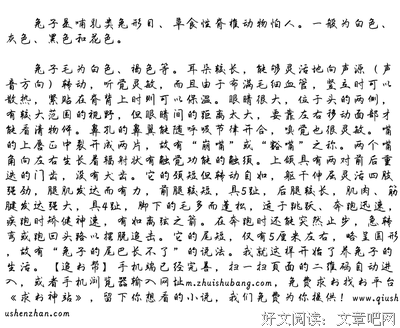 兔子是哺乳类兔形目、草食性脊椎动物怕人。一般为白色、
灰色、黑色和花色。
兔子毛为白色、褐色等。耳朵较长，能够灵活地向声源（声
音方向）转动，听觉灵敏，而且由于布满毛细血管，竖立时可以
散热，紧贴在脊背上时则可以保温。眼睛很大，位于头的两侧，
有较大范围的视野，但眼睛间的距离太大，要靠左右移动面部才
能看清物体。鼻孔的鼻翼能随呼吸节律开合，嗅觉也很灵敏。嘴
的上唇正中裂开成两片，故有“崩嘴”或“豁嘴”之称。两个嘴
角向左右生长着辐射状有触觉功能的触须。上颌具有两对前后重
迭的门齿，没有犬齿。它的颈较短但转动自如，躯干伸展灵活四肢
强劲，腿肌发达而有力，前腿较短，具5趾，后腿较长，肌肉，筋
腱发达强大，具4趾，脚下的毛多而蓬松，适于跳跃、奔跑迅速，
疾跑时矫健神速，有如离弦之箭。在奔跑时还能突然止步，急转
弯或跑回头路以摆脱追击。它的尾短，仅有5厘米左右，略呈圆形
，故有“兔子的尾巴长不了”的说法。我就这样开始了养兔子的
生活。【追书帮】手机端已经完善，扫一扫页面的二维码自动进
入，或者手机浏览器输入网址m.zhuishubang.com，免费求书找书平台
《求书神站》，留下你想看的小说，我们免费为你提供！www.qiush
ushenzhan.com
好文阅读：文章吧网